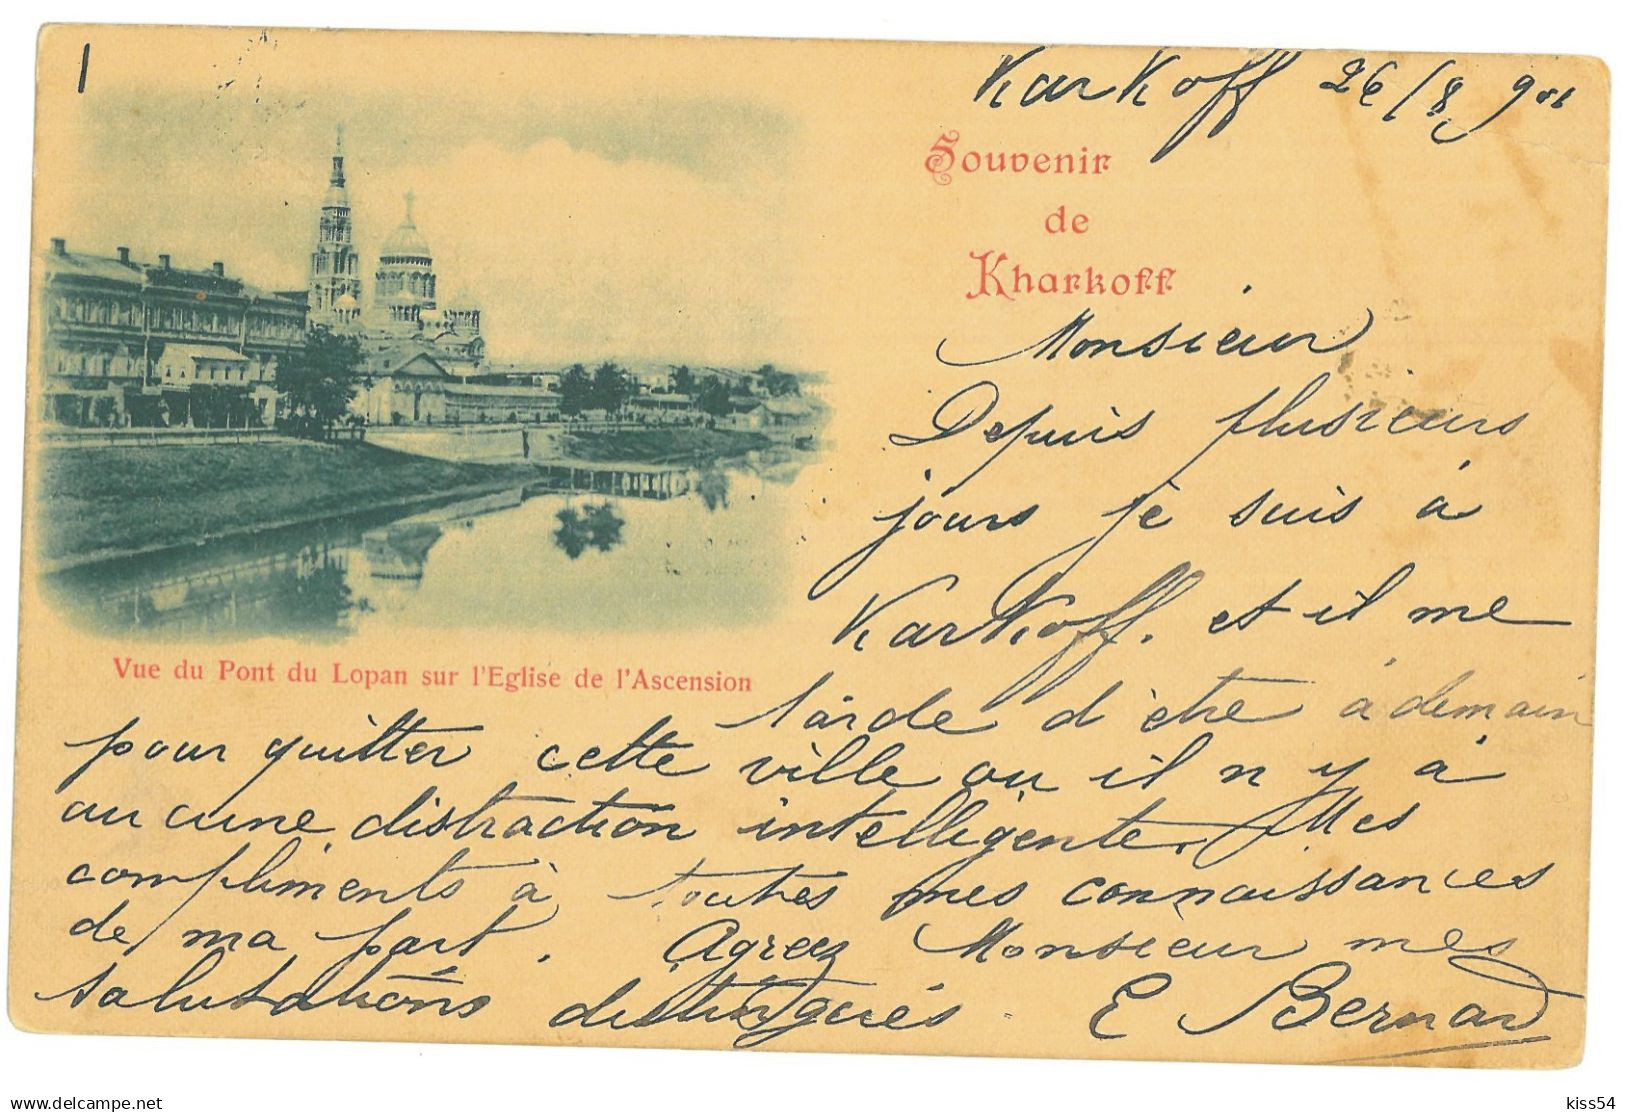 1
Karkoff 26/8 901
Souvenir
de
Kharkoff
Monsieur
Depuis plusieurs
jours je suis à
Karkoff. et il me
tarde d'être à demain
Vue du Pont du Lopan sur l'Eglise de l'Ascension
pour quitter cette ville ou il n y à
aucune distraction intelligente. Mes
compliments à toutes mes connaissances
de ma part. Agreez Monsieur mes
salutations distingués. E Bernard
delcampe.net
kiss54